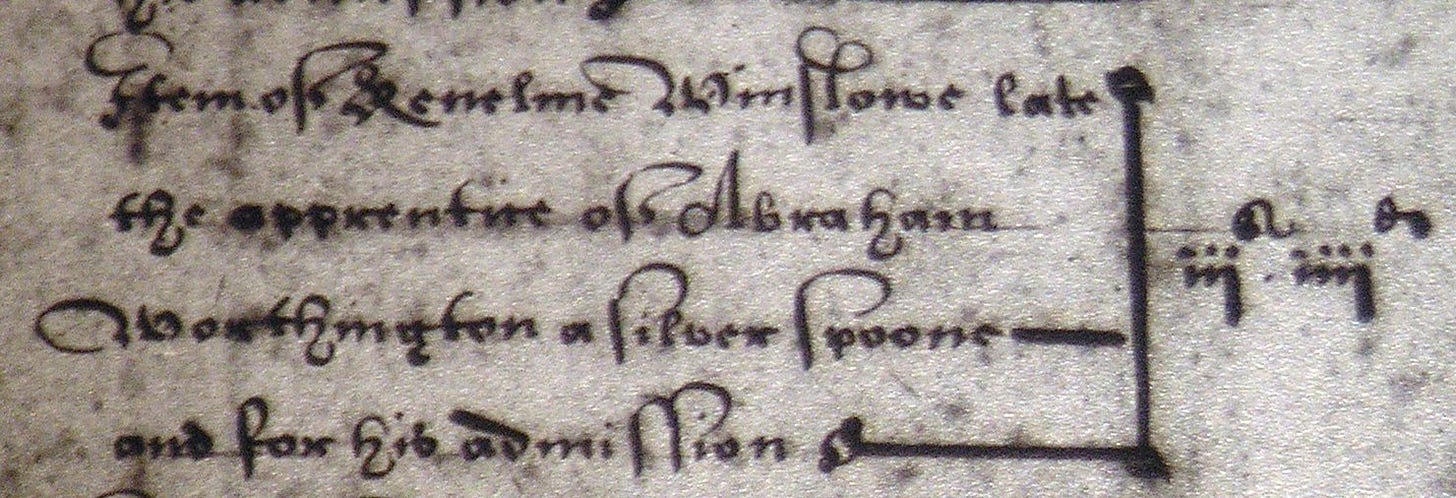 Item of Kenelme Winslowe late
the apprentice of Abraham
Worthington a silver spoone
and for his admission
iijs iiijd